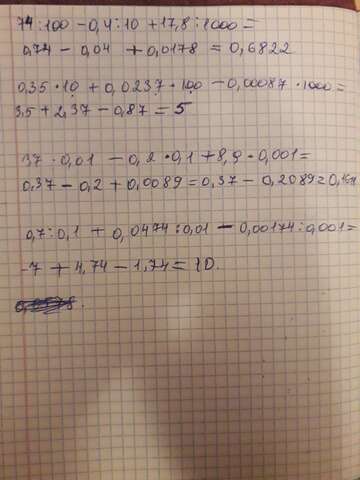 74:100 - 0,4:10 + 17,8:1000 =
0,74 - 0,04 + 0,0178 = 0,6822
0,35·10 + 0,0237·100 - 0,00087·1000 =
3,5 + 2,37 - 0,87 = 5
37·0,01 - 0,2·0,1 + 8,9·0,001 =
0,37 - 0,2 + 0,0089 = 0,37 - 0,2089 =
0,7:0,1 + 0,0474:0,01 - 0,00174:0,001 =
7 + 4,74 - 1,74 = 10.